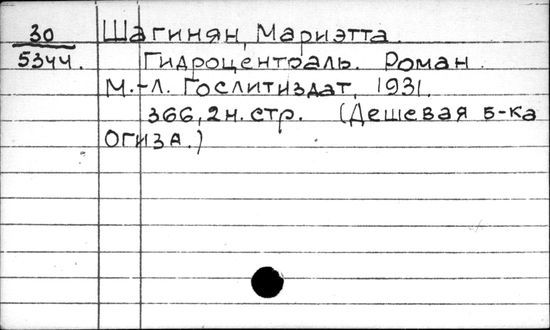 30 Шагинян, Мариэтта.
5344. Гидроцентраль. Роман.
М.-Л. Гослитиздат, 1931.
366, 2 н. стр. (Дешевая б-ка
Огиза.)